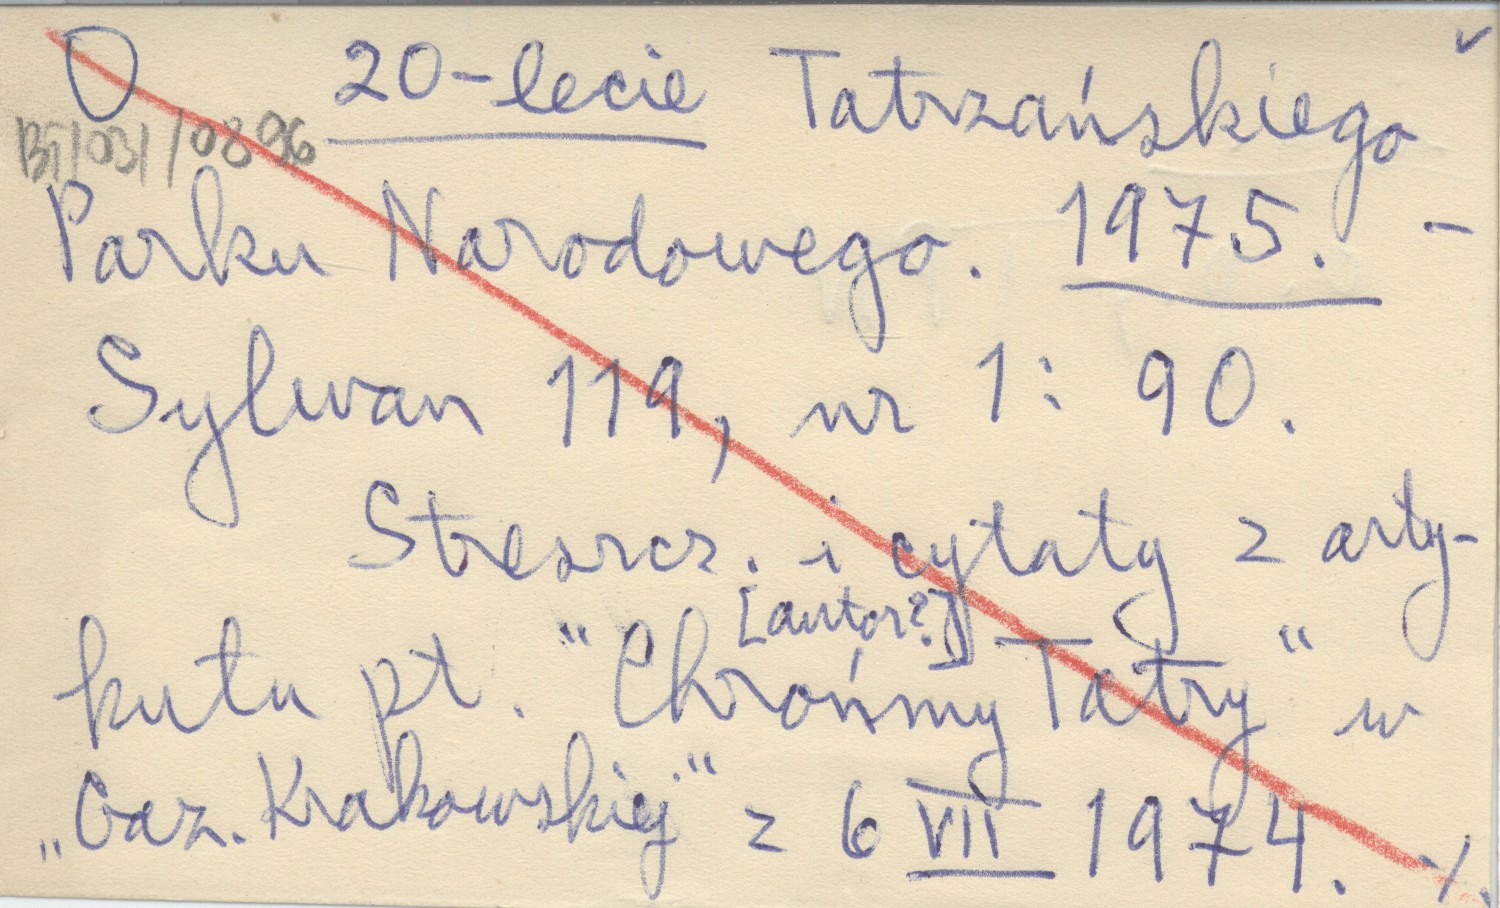 O 20-lecie Tatrzańskiego
Bi/031/0896
Parku Narodowego. 1975. -
Sylwan 119, nr 1: 90.
Streszcz. i cytaty z arty-
[autor?]
kułu pt. "Chrońmy Tatry" w
„Gaz. Krakowskiej" z 6 VII 1974. ./.